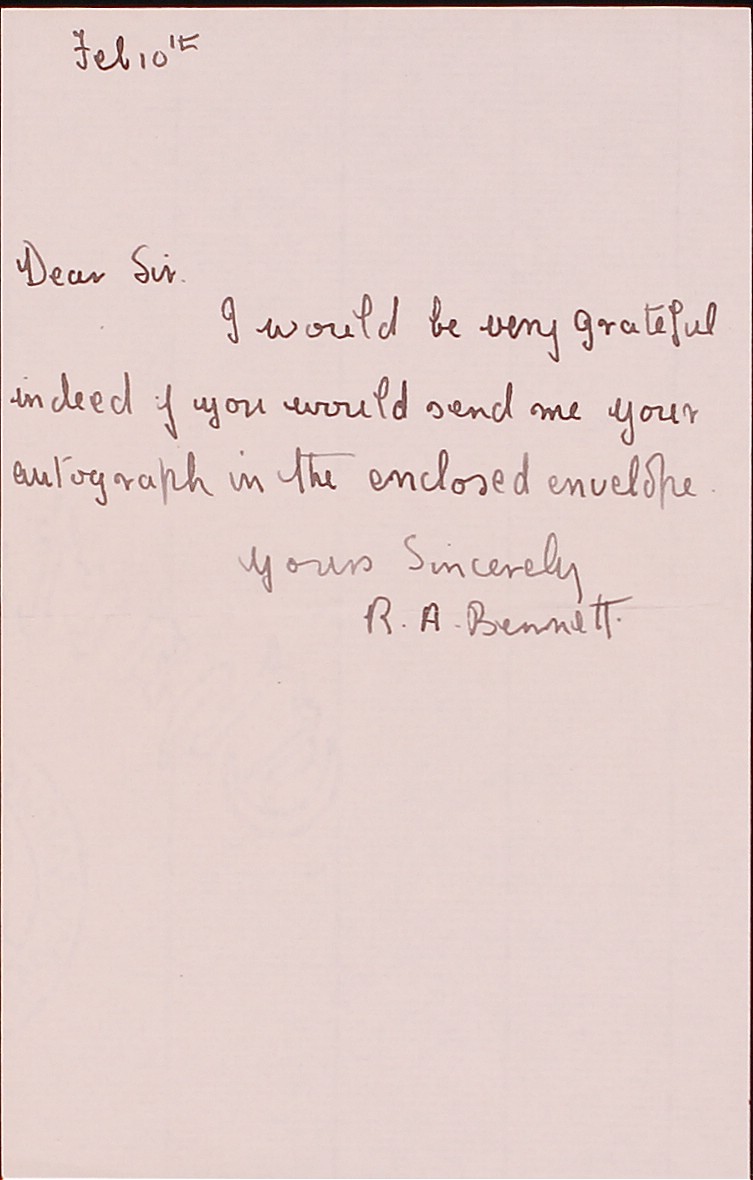 Feb 10th
Dear Sir.
I would be very grateful
indeed if you would send me your
autograph in the enclosed envelope.
Yours Sincerely
R. A. Bennett.